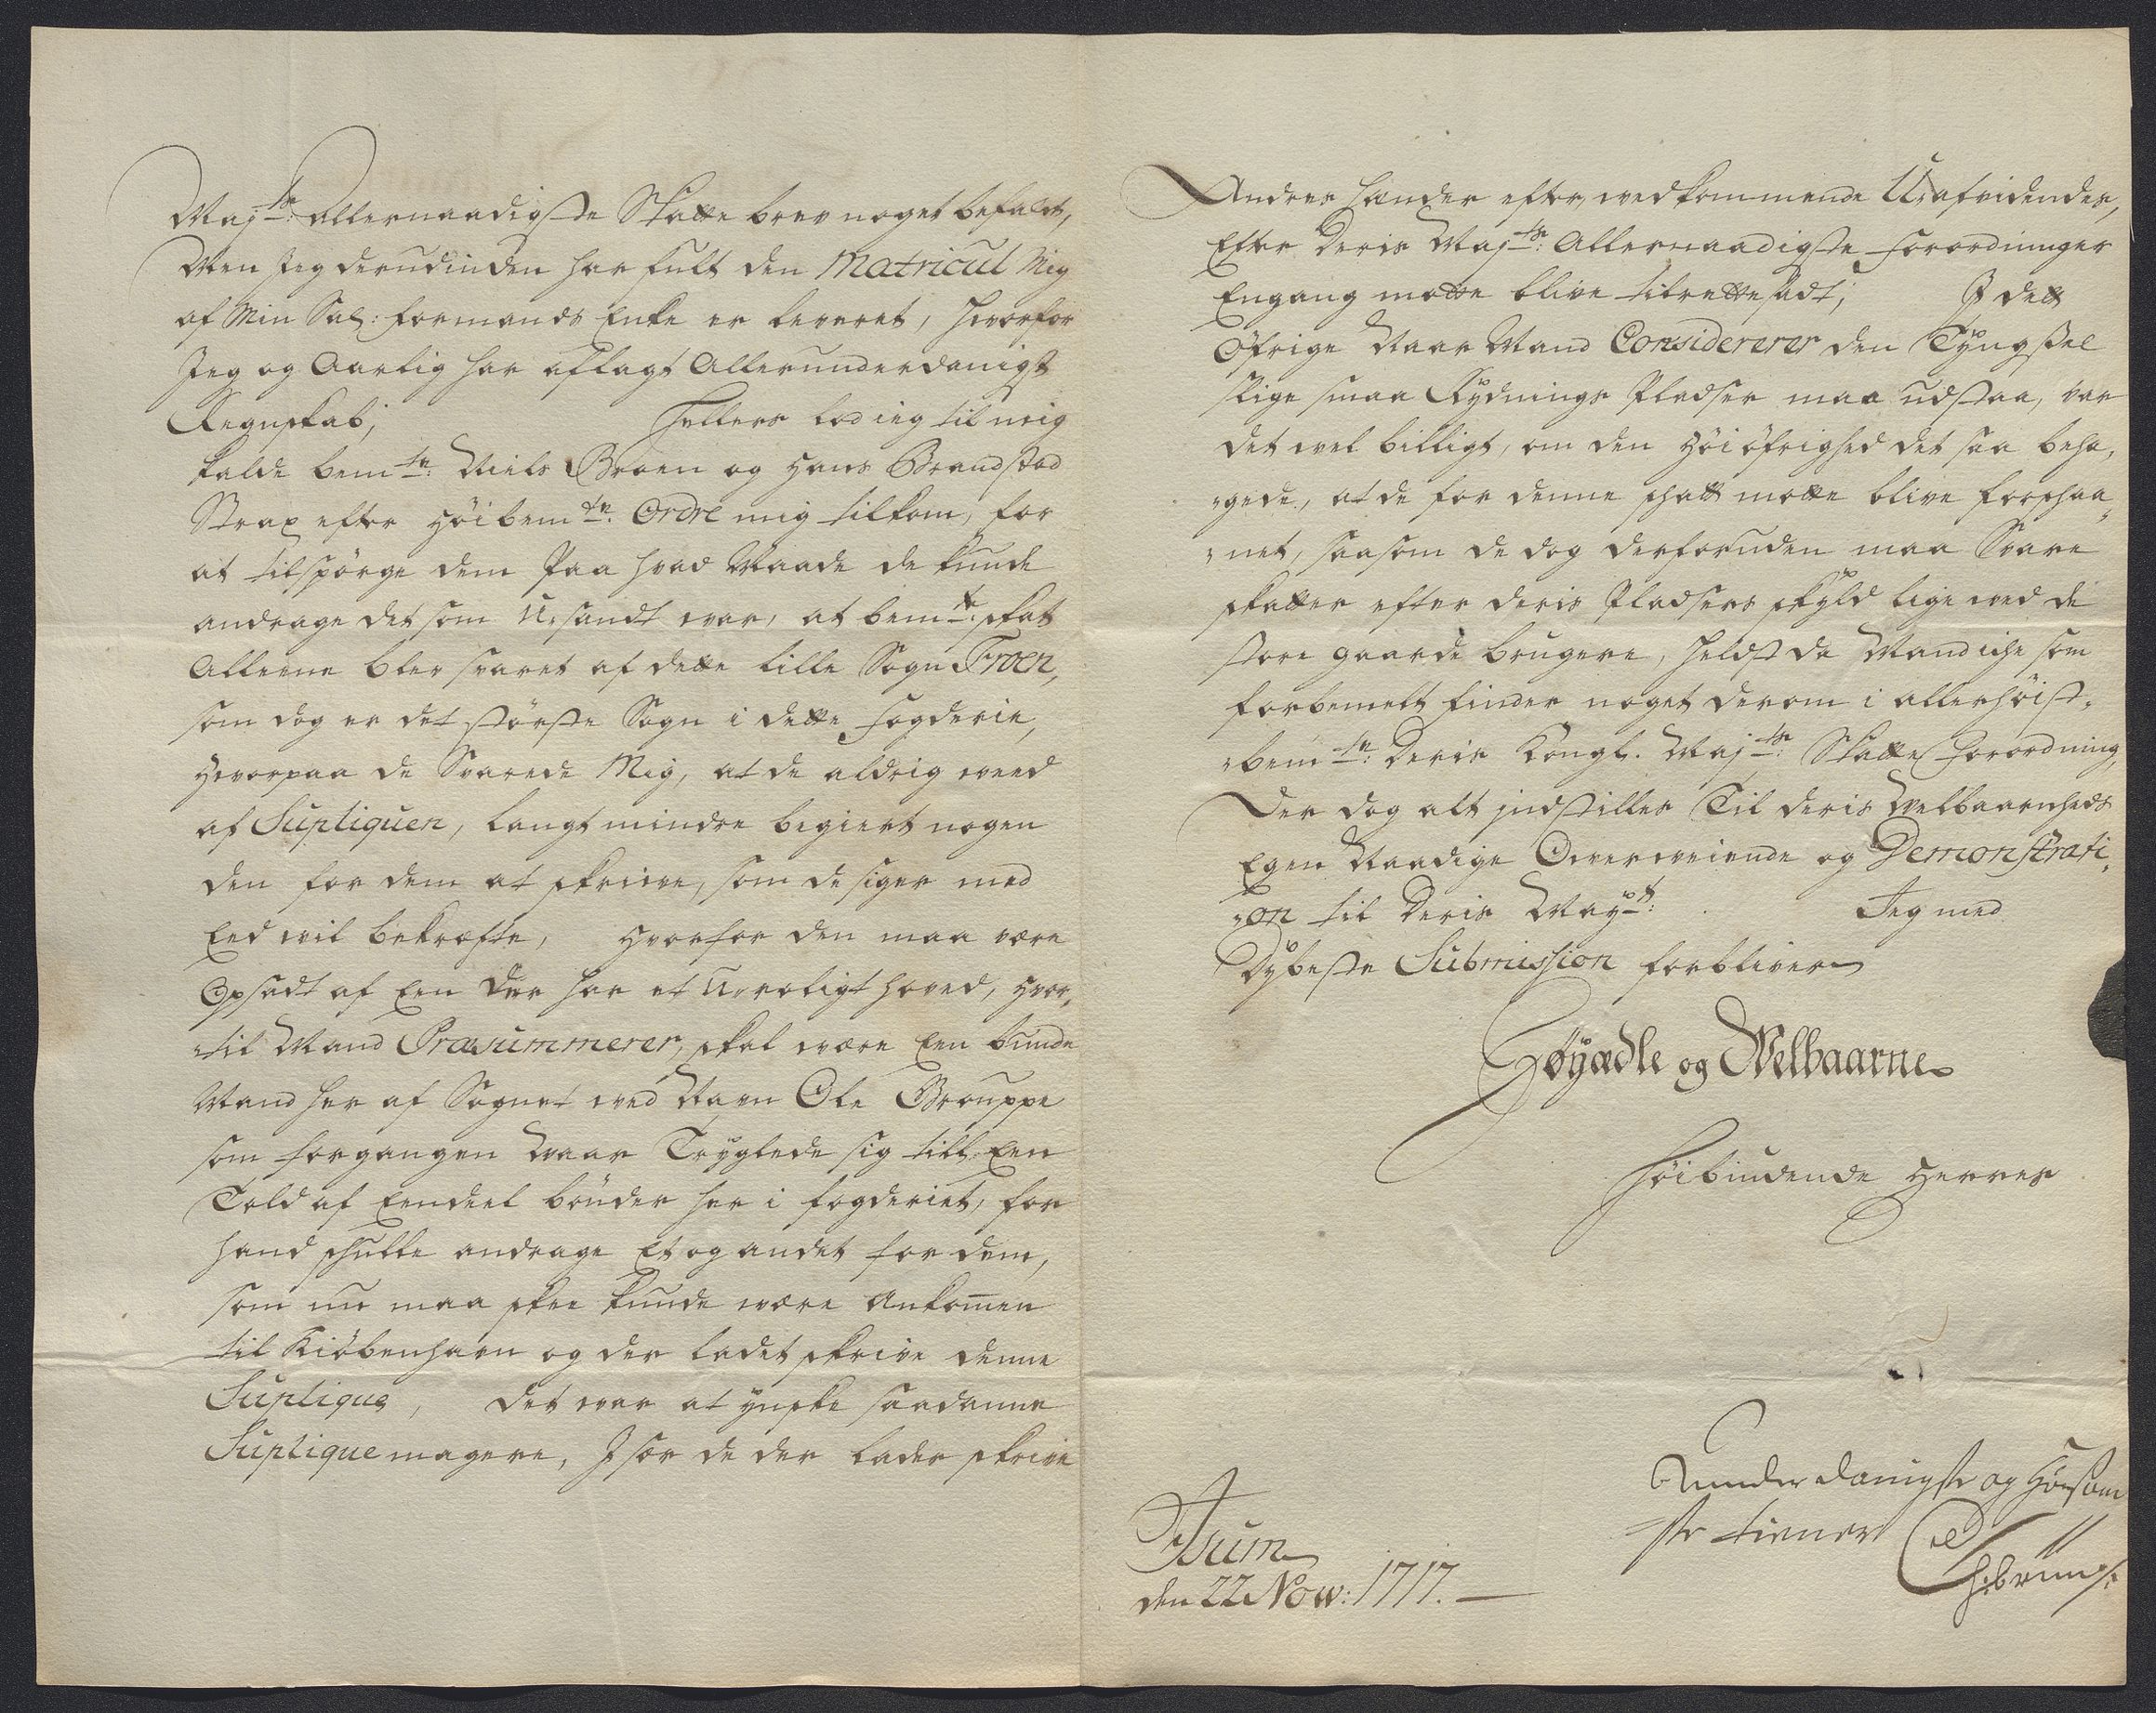 Maj:ts: Allernaadigste Skatte brev noget befalet,
Men Jeg derudinden har fult den Matricul Mig
af Min Sal: formands Enke er leveret, hvorfor
Jeg og Aarlig har aflagt Allerunderdanigst
Regnskab; Hellers lod ieg til mig
kalde bem:te: Niels Broen og Hans Brandstad
Strax efter Höibem:te: Ordre mig tilkom, for
at tilspörge dem Paa hvad Maade de kunde
andrage det som U,sandt war, at bem:te: skat
Alleene blev svaret af dette lille Sogn Froen,
som dog er det störste Sogn i dette fogderie,
Hvorpaa de Svarede Mig, at de aldrig weed
af Supliquen, langt mindre begiert nogen
den for dem at skrive, som de siger med
Eed wil bekrefte, Hvorfor den maa være
Opsadt af Een der har et U,roligt hoved, Hvor,
"til Mand Præsummerer, skal være Een bunde
Mand her af Sognet wed Navn Ole Gruppe
som forgangen Waar Tryglede sig till Een
Told af Eendeel bönder her i fogderiet, for
hand skulle andrage Et og andet for dem,
som nu maa skee kunde være Ankomen
til Kiöbenhavn og der ladet skrive denne
Suplique, det war at ynske saadanne
Suplique magere, Jsær de der lader skrive
Andres hænder efter, wedkommende U,afvidendes,
Efter Deris Maj:ts: Allernaadigste forordninger
Engang motte blive tilrettesadt; J dett
Öfrige Naar Mand Considererer den Tyngsel
slige smaa Rydnings Pladser maa udstaa, var
det wel billigt, om den Höi öfrighed det saa beha,
"gede, at de for denne skatt motte blive forskaa,
"net, saasom de dog derforuden maa Svare
skatter efter deris Pladsers skyld lige wed de
store gaarde brugere, helst da Mand iche som
forbemelt finder noget derom i allerhöist,
"bem:te: Deris Kongl. Maj:ts: Skatte forordning,
Der dog alt indstilles Til deris Welbaarenheds
Egen Naadige Owerveiende og Demonstrati,
"on til Deris May:tt: Jeg med
Dybeste Submission forbliver
Höyædle og Welbaarne
Höibiudende Herres
Tium
den 22 Now: 1717.
underdanigste og Hörsom
ste tiener